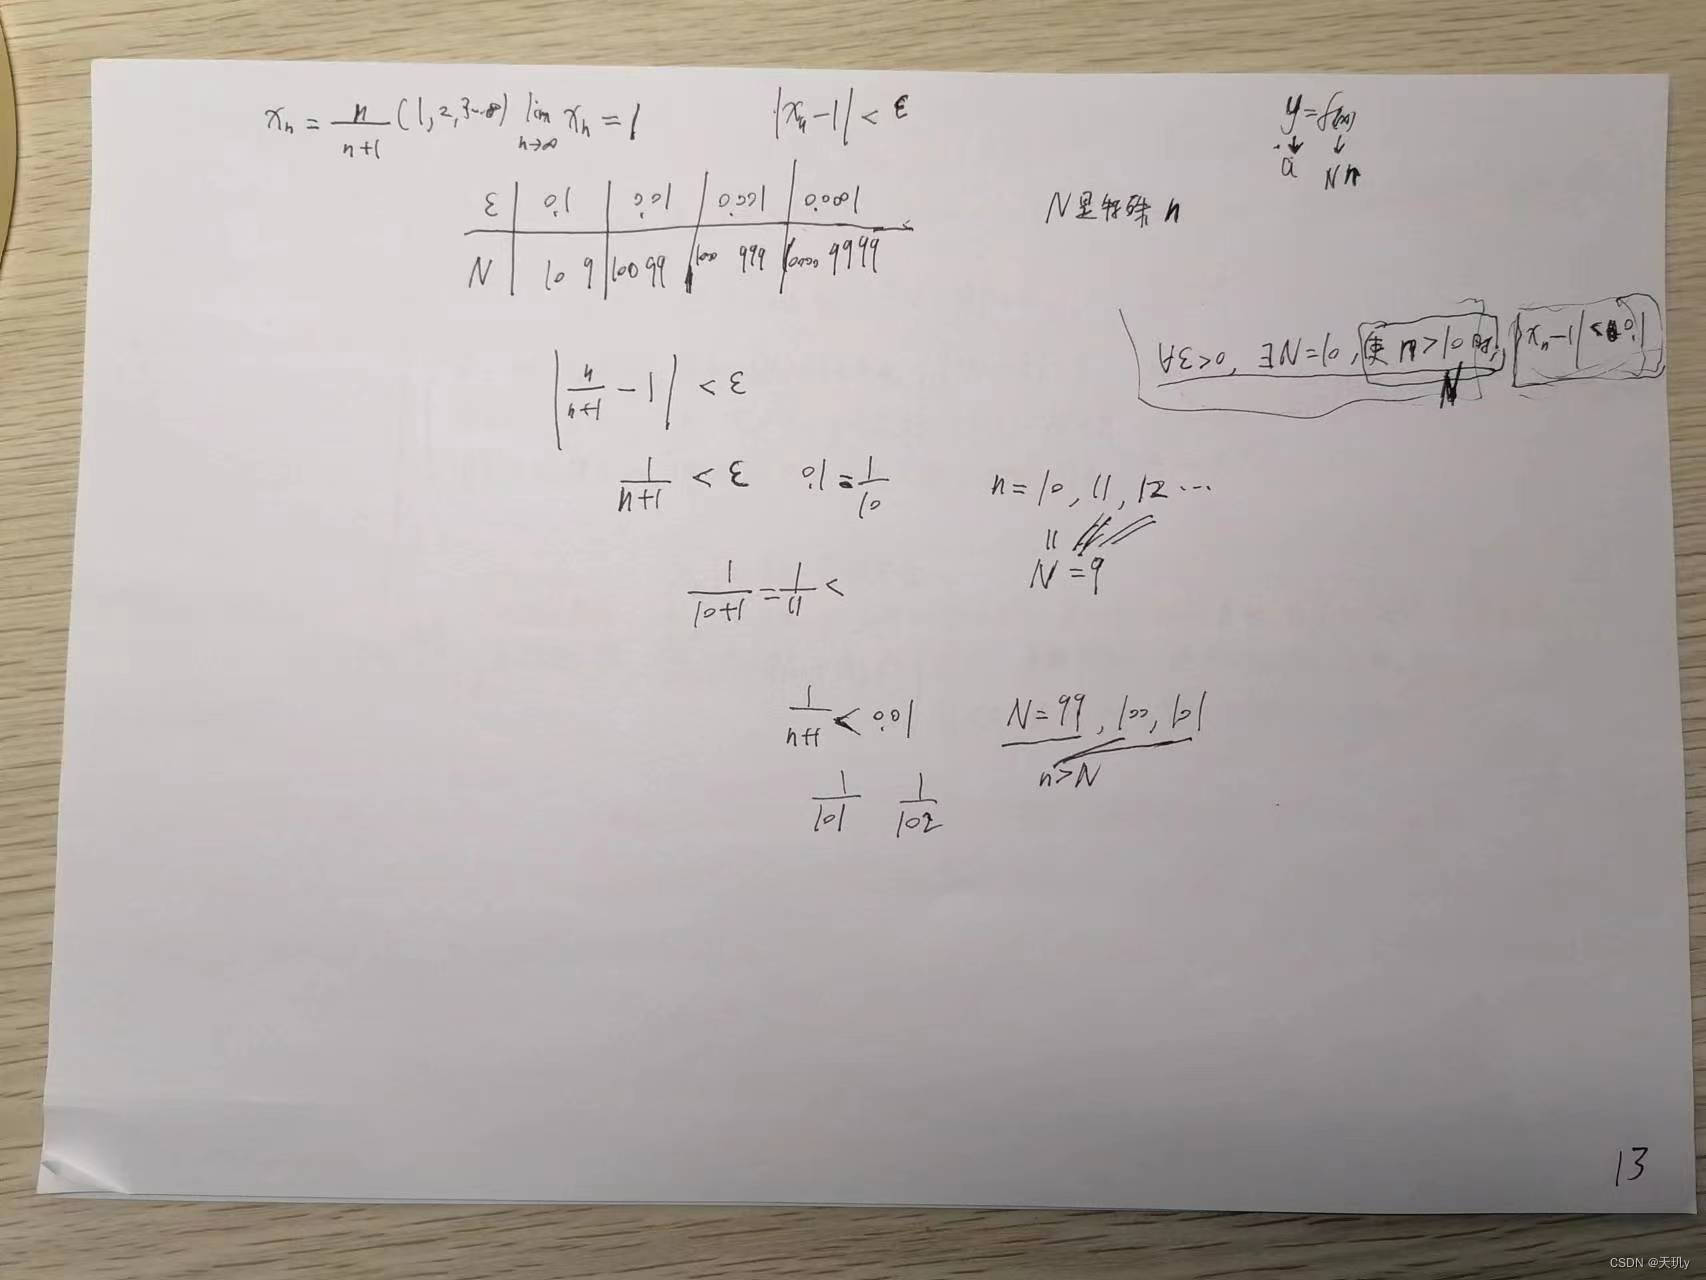 xₙ = n/(n+1) (1,2,3…∞) lim n→∞ xₙ = 1 |xₙ-1| < ε y=f(x)
a N n
ε 0.1 0.01 0.001 0.0001 N是特殊n
N 10 9 100 99 1000 999 10000 9999
∀ε>0, ∃N=10, 使n>10时, |xₙ-1|<0.1
N
|n/(n+1) - 1| < ε
1/(n+1) < ε 0.1=1/10 n=10, 11, 12 …
11
N=9
1/(10+1) = 1/11 <
1/(n+1) < 0.01 N=99, 100, 101
n>N
1/101 1/102
13
CSDN @天玑y